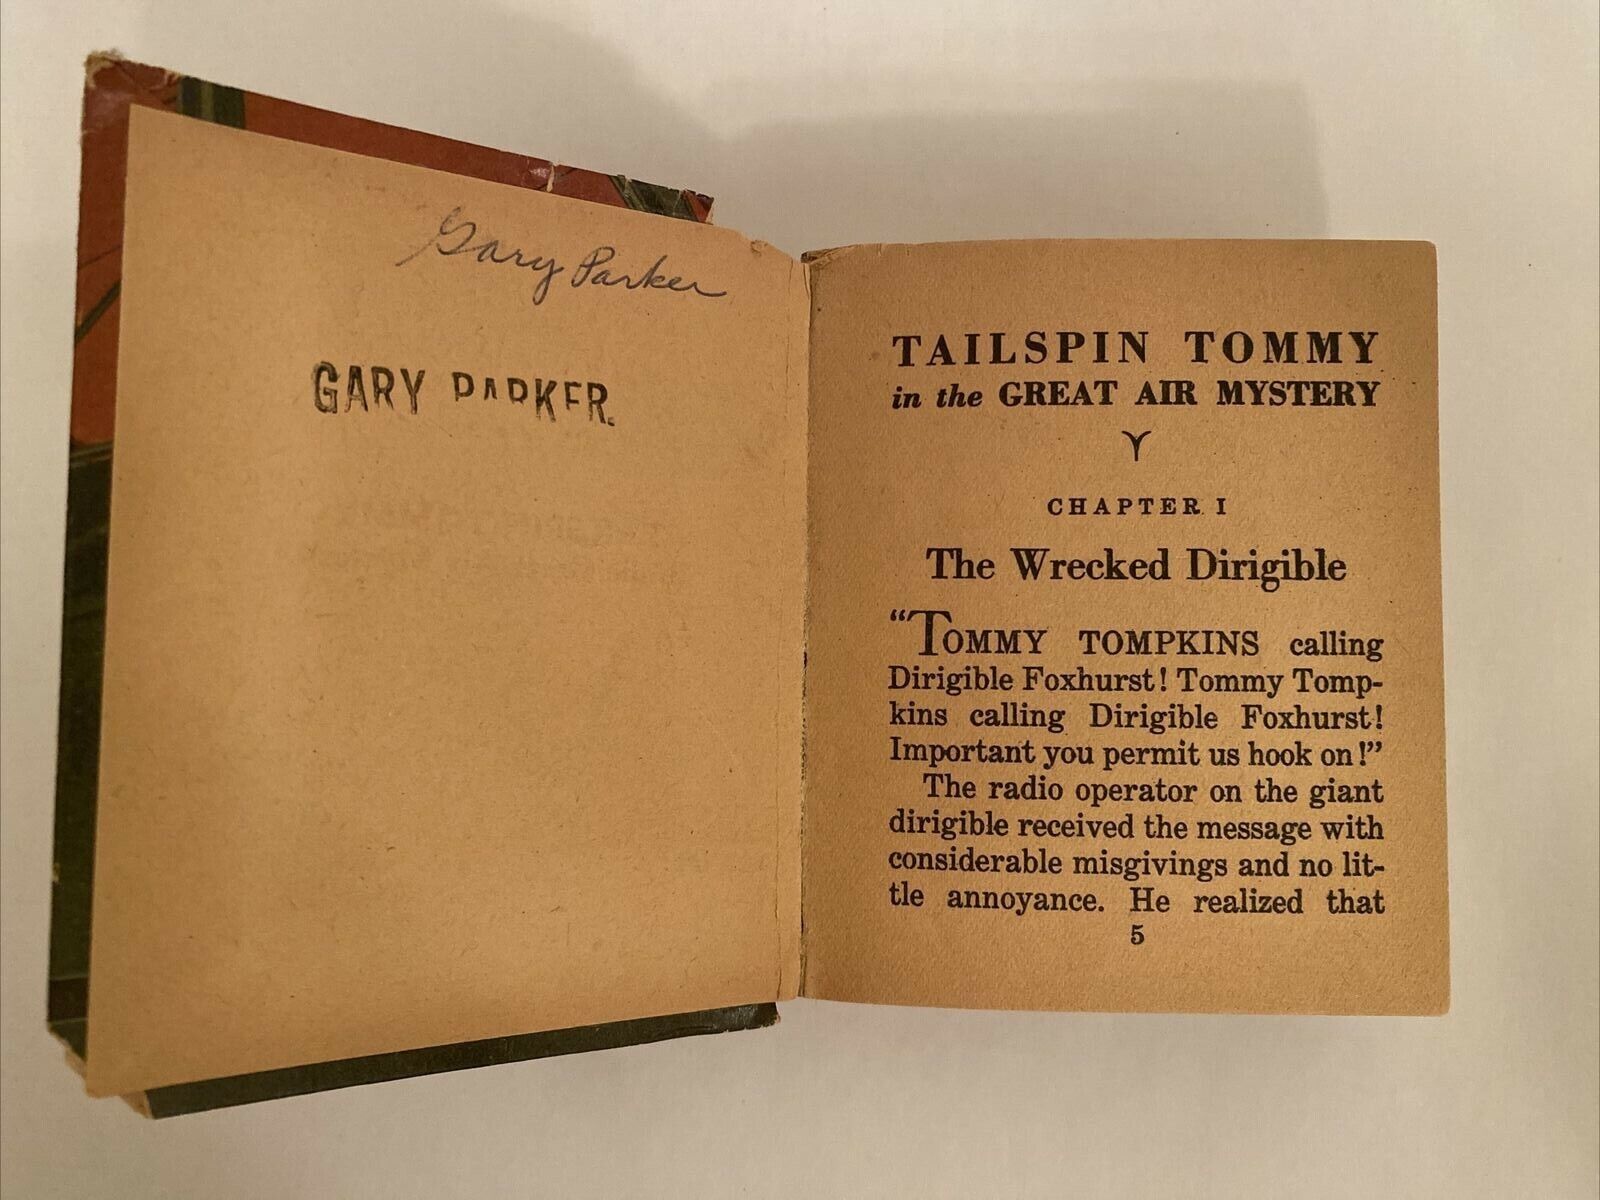 Gary Parker
GARY PARKER.
TAILSPIN TOMMY
in the GREAT AIR MYSTERY
CHAPTER I
The Wrecked Dirigible
"TOMMY TOMPKINS calling
Dirigible Foxhurst! Tommy Tomp-
kins calling Dirigible Foxhurst!
Important you permit us hook on!"
The radio operator on the giant
dirigible received the message with
considerable misgivings and no lit-
tle annoyance. He realized that
5